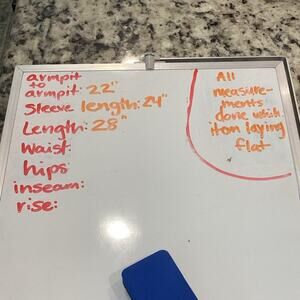 armpit
to
armpit: 22"
Sleeve length: 24"
Length: 28"
Waist:
hips
inseam:
rise:
All
measure-
ments
done while
item laying
flat